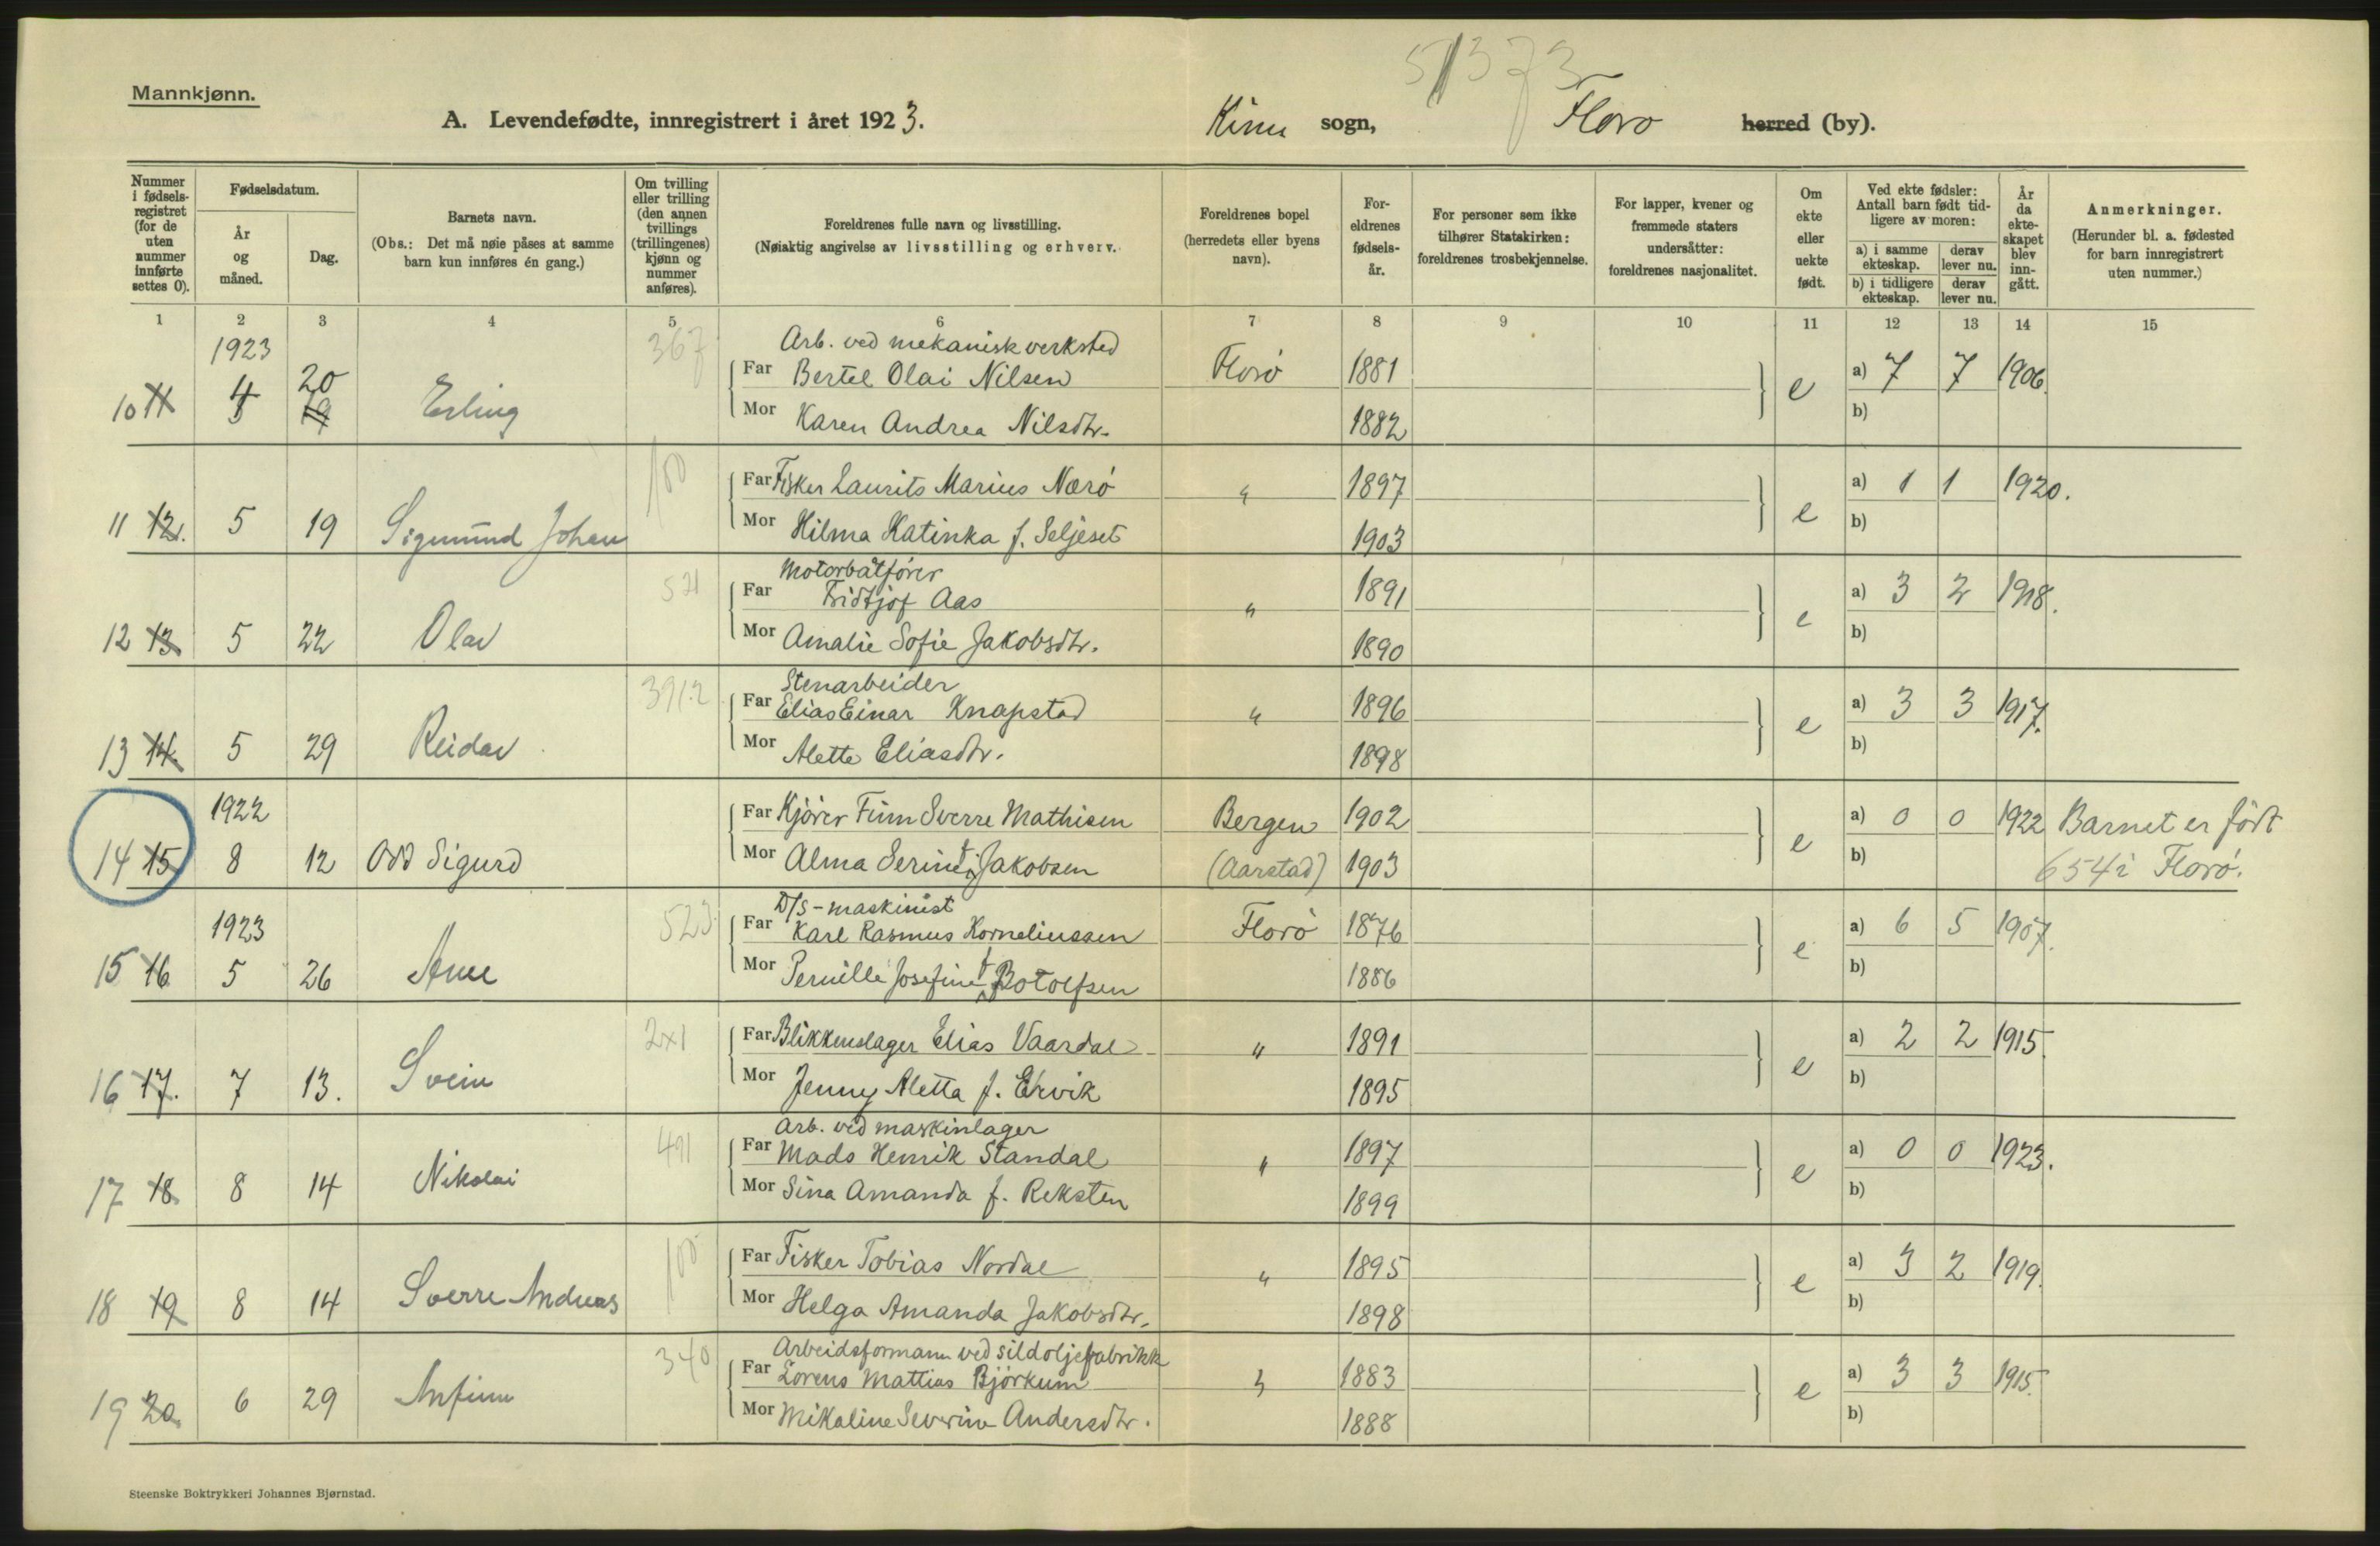 51373
Mannkjønn.
A. Levendefødte, innregistrert i året 1923. Kinn sogn, Florø herred (by).
Nummer i fødsels-registret (for de uten nummer innførte settes 0).
Fødselsdatum.
År og måned.
Dag.
Barnets navn.
(Obs.: Det må nøie påses at samme barn kun innføres én gang.)
Om tvilling eller trilling (den annen tvillings (trillingenes) kjønn og nummer anføres).
Foreldrenes fulle navn og livsstilling.
(Nøiaktig angivelse av livsstilling og erhverv.
Foreldrenes bopel (herredets eller byens navn).
For-eldrenes fødsels-år.
For personer som ikke tilhører Statskirken: foreldrenes trosbekjennelse.
For lapper, kvener og fremmede staters undersåtter: foreldrenes nasjonalitet.
Om ekte eller uekte født.
Ved ekte fødsler: Antall barn født tid-ligere av moren:
a) i samme ekteskap. derav lever nu.
b) i tidligere ekteskap. derav lever nu.
År da ekte-skapet blev inn-gått.
Anmerkninger.
(Herunder bl. a. fødested for barn innregistrert uten nummer.)
1 2 3 4 5 6 7 8 9 10 11 12 13 14 15
1923 367 Arb. ved mekanisk verksted
10 11 4 20 19 Erling Far Bertel Olai Nilsen Florø 1881 e a) 7 7 1906.
Mor Karen Andrea Nilsdtr. 1882 b)
100 Far Fisker Laurits Marius Nærö " 1897 a) 1 1 1920.
11 12. 5 19 Sigmund Johan Mor Hilma Katinka f. Seljeset 1903 e b)
521 Motorbåtfører
Far Fridtjof Aas " 1891 a) 3 2 1918.
12 13 5 22 Olav Mor Amalie Sofie Jakobsdtr. 1890 e b)
391.2 Stenarbeider
Far Elias Einar Knapstad " 1896 a) 3 3 1917.
13 14. 5 29 Reidar Mor Alette Eliasdtr. 1898 e b)
1922 Far Kjörer Finn Sverre Mathisen Bergen 1902 a) 0 0 1922 Barnet er födt
14 15 8 12 Odd Sigurd Mor Alma Serine f. Jakobsen (Aarstad) 1903 e b) 654 i Florø.
D/S-maskinist
1923 523 Far Karl Rasmus Korneliussen Florø 1876 a) 6 5 1907.
15 16 5 26 Arne Mor Pernille Josefine f. Botolfsen 1886 e b)
2x1 Far Blikkenslager Elias Vaardal " 1891 a) 2 2 1915
16 17. 7 13. Svein Mor Jenny Aletta f. Ervik 1895 e b)
Arb. ved maskinlager
491 Far Mads Henrik Standal " 1897 a) 0 0 1923.
17 18. 8 14 Nikolai Mor Sina Amanda f. Reksten 1899 e b)
100 Far Fisker Tobias Nordal " 1895 a) 3 2 1919.
18 19 8 14 Sverre Andreas Mor Helga Amanda Jakobsdtr. 1898 e b)
340 Arbeidsformann ved sildoljefabrikk
Far Lorens Mattias Björkum " 1883 a) 3 3 1915.
19 20. 6 29 Arnfinn Mor Mikaline Severine Andersdtr. 1888 e b)
Steenske Boktrykkeri Johannes Bjørnstad.